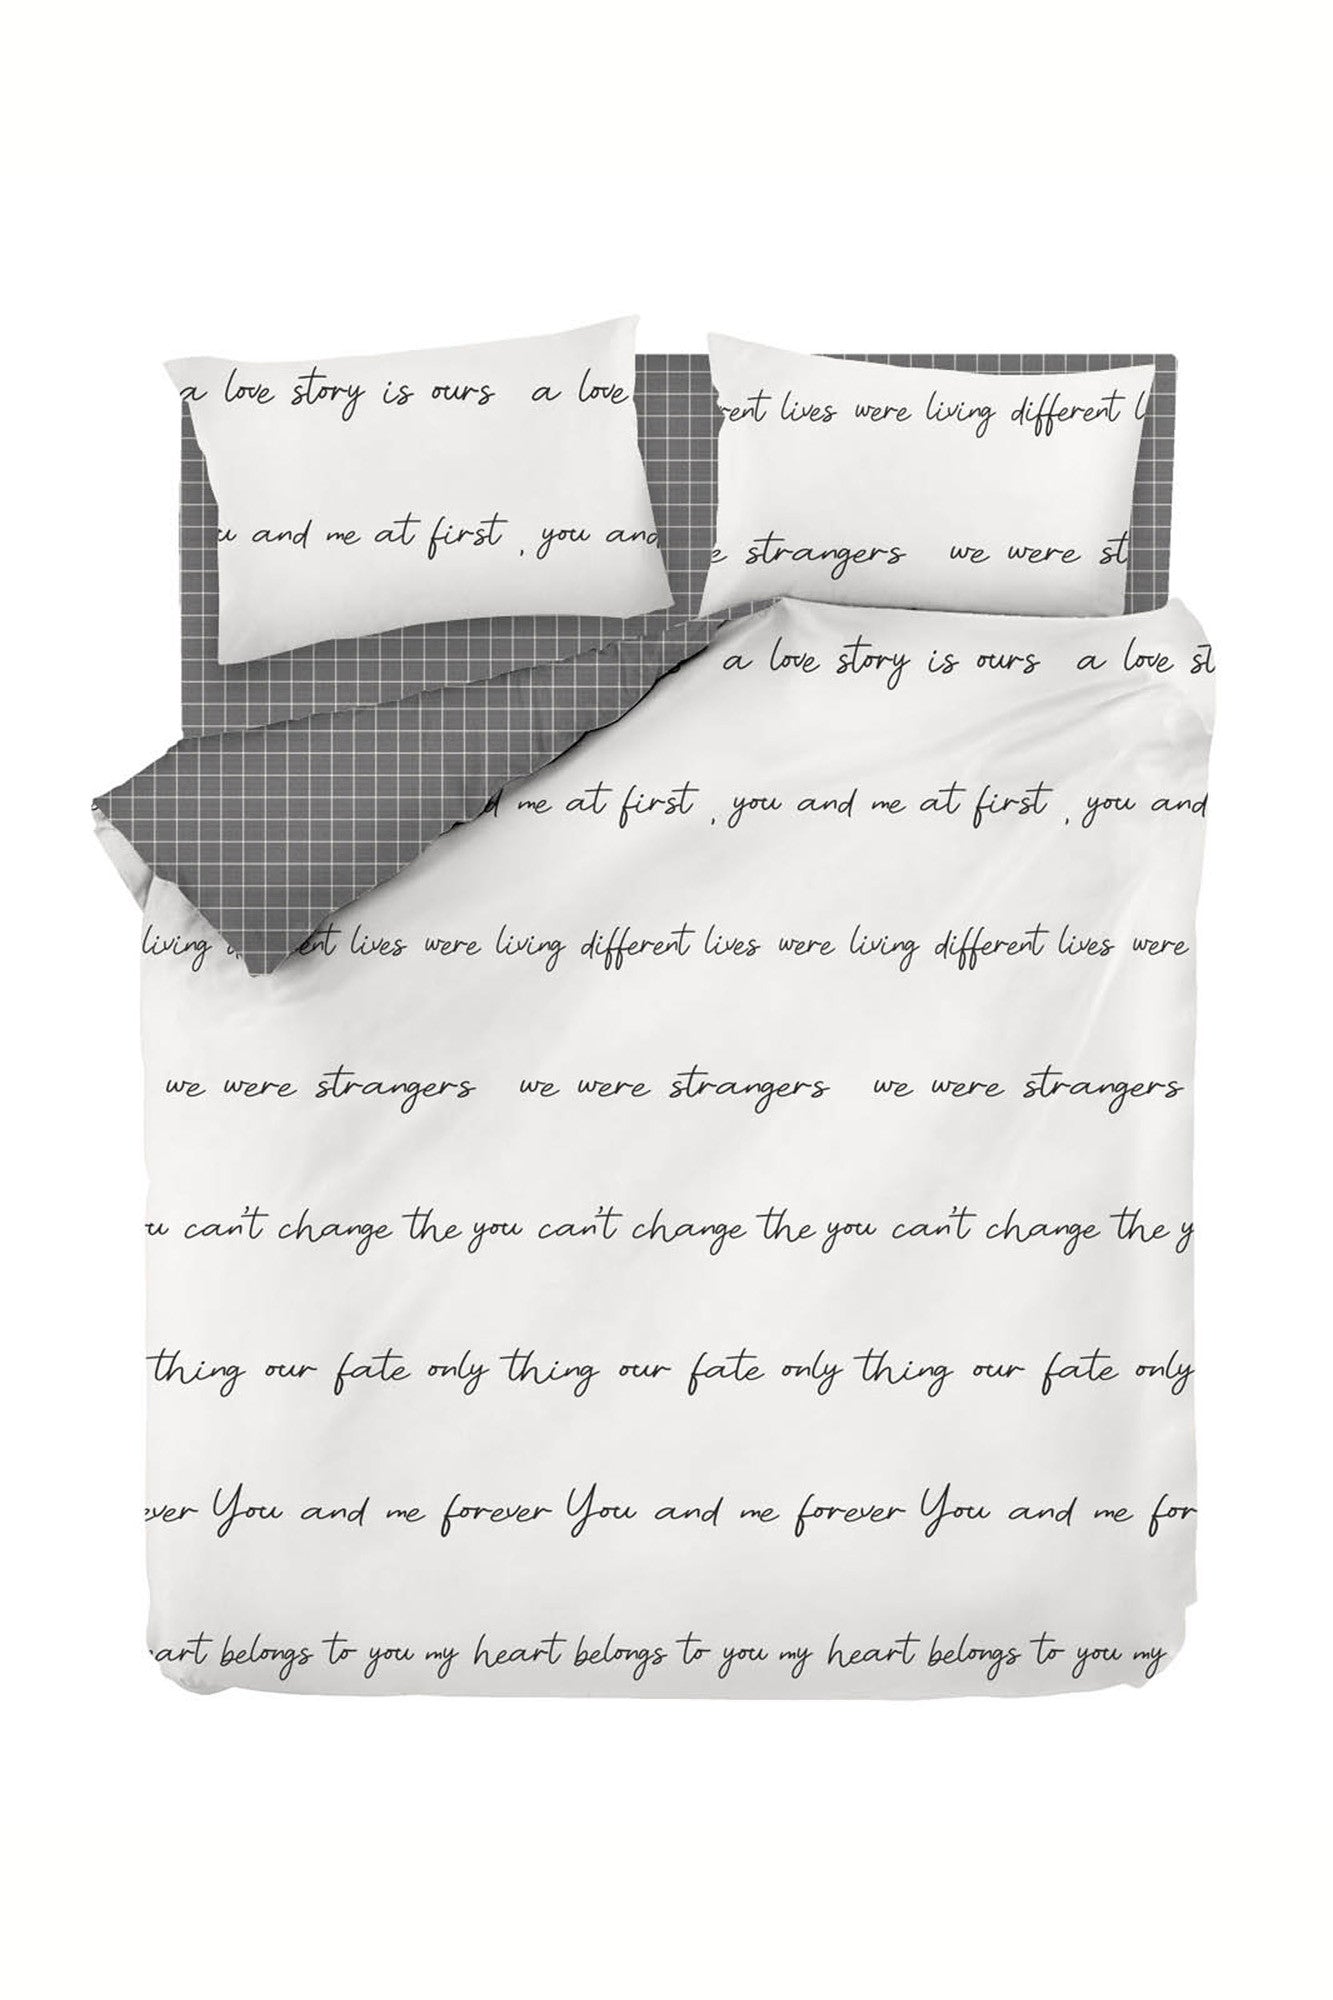 a love story is ours a love
and me at first , you and
lives were living different
strangers we were
a love story is ours a love
me at first , you and me at first , you and
living lives were living different lives were living different lives were
we were strangers we were strangers we were strangers
can't change the you can't change the you can't change the
thing our fate only thing our fate only thing our fate only
You and me forever You and me forever You and me for
belongs to you my heart belongs to you my heart belongs to you my